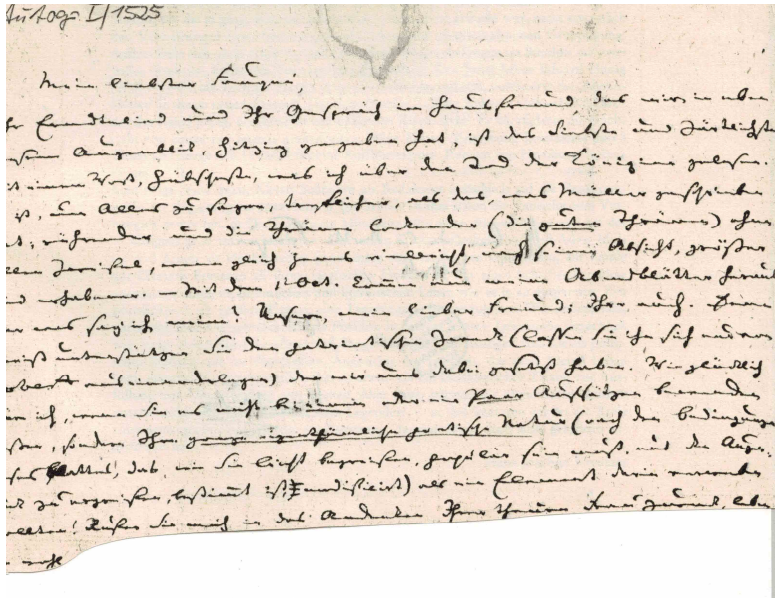 Autogr. I/1525
Mein liebster Fouqué,
Ihr Erndtelied und Ihr Gespräch im Hausfreund, das mir in eben
Augenblick, Hitzig gegeben hat, ist das Liebste und Zärtlichste
Hübscheste, was ich über den Tod der Königinn gelesen.
ist, um Alles zu sagen, trefflicher, als das, was Müller geschrieben
rührender und die Thränen lockender (die guten Thränen) ohne
allen Zweifel, wenn gleich jenes vielleicht, nach seiner Absicht, größer
und erhabener. – Mit dem 1t Oct. kommen nun meine Abendblätter heraus
was sag ich meine? Unsere, mein lieber Freund; Ihre auch. Denn
gewiß unterstützen Sie den patriotischen Zweck (lassen Sie ihn sich
auseinanderlegen) den wir uns dabei gesetzt haben. Wie glücklich
ich, wenn Sie es nicht bei einem oder ein Paar Aufsätzen bewenden
sondern Ihre ganze eigenthümliche poetische Natur (nach den Bedingungen
Blattes, das, wie Sie leicht begreifen, populär sein muß, und den Auge-
zu ergreifen, bestimmt ist, modificirt) als ein Element darin verweben
wollten! Rufen Sie mich in das Andenken Ihrer theuren Frau zurück, leben
wohl